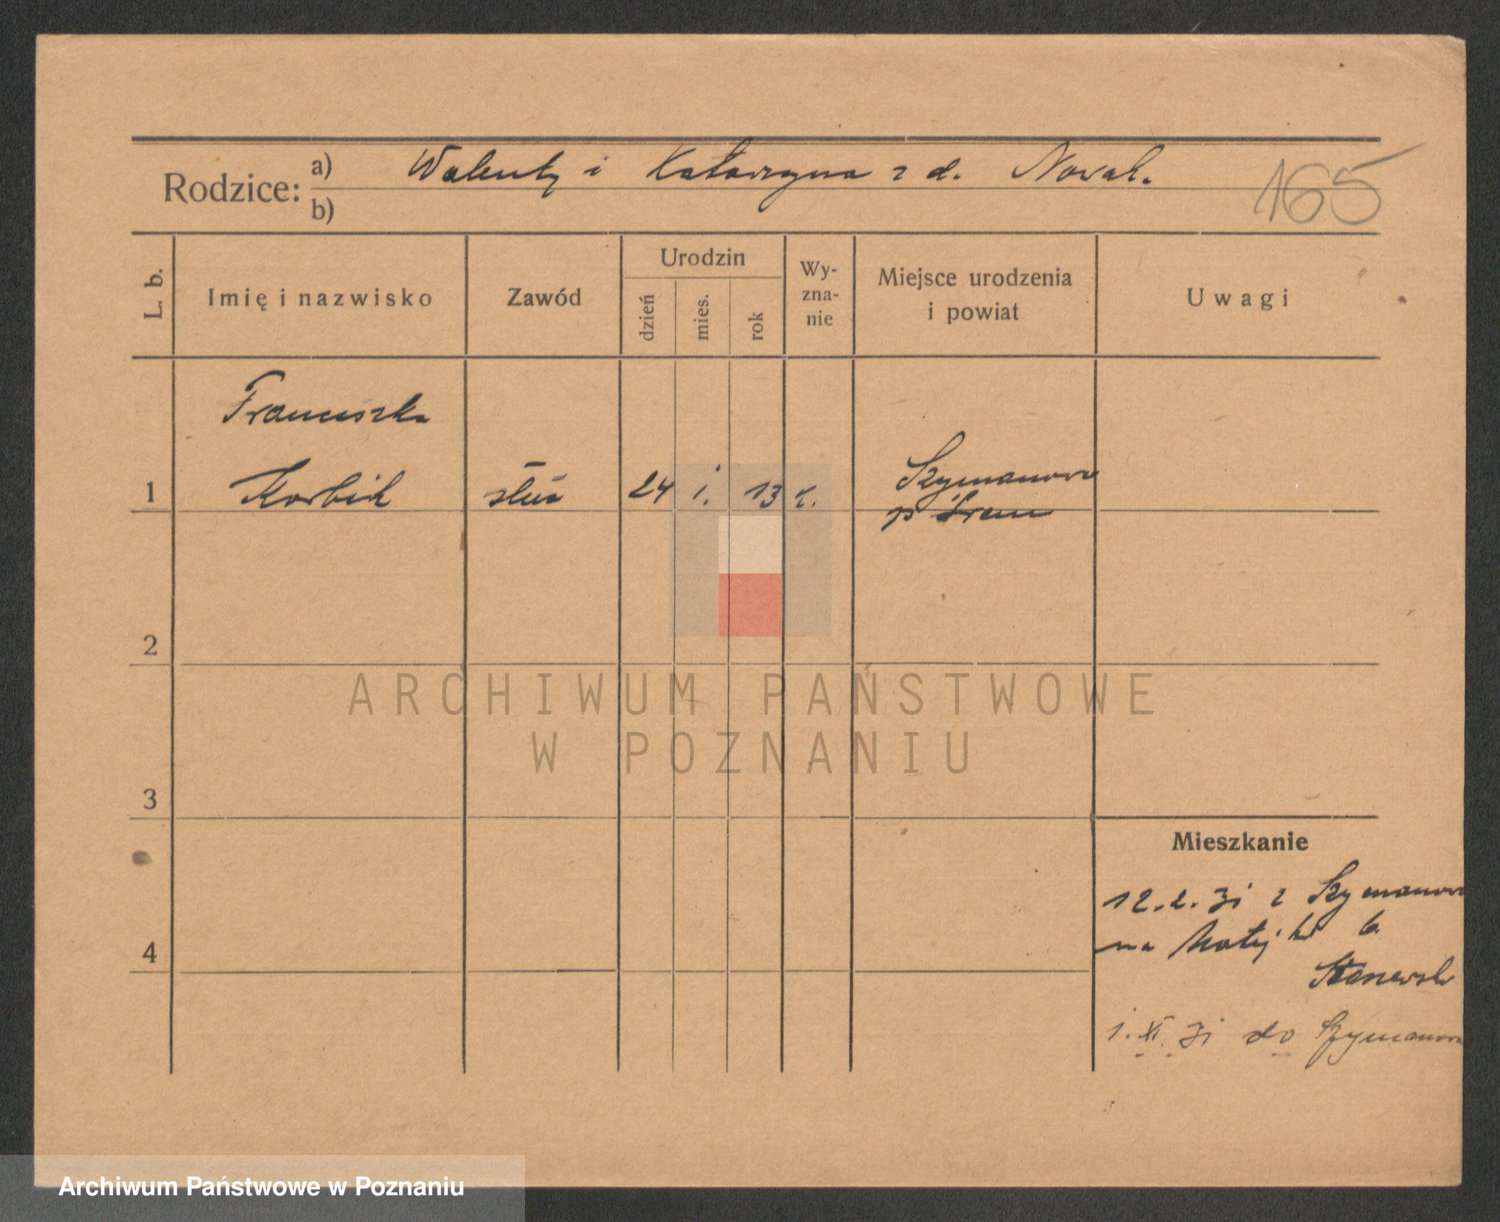 Rodzice: a) Walenty i Katarzyna z d. Nowak.
b)
165
L. b.
Imię i nazwisko
Zawód
Urodzin
dzień
mies.
rok
Wy-
zna-
nie
Miejsce urodzenia
i powiat
Uwagi
Franciszka
1 Korbik służ 24 i. 13 k. Szymanowo
p Śrem
2
3
4
Mieszkanie
12.2.31 z Szymanowo
na Matejki 6.
1.XI.31 do Szymanowo
ARCHIWUM PAŃSTWOWE
W POZNANIU
Archiwum Państwowe w Poznaniu